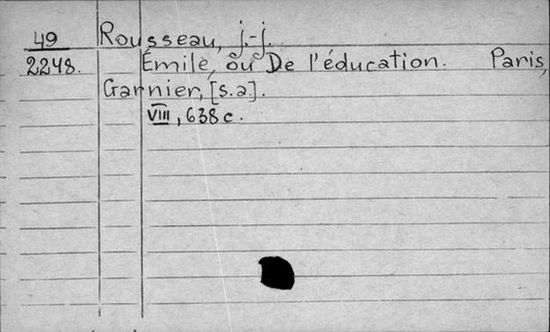 49 Rousseau, j.-j.
2248. Émile, ou De l'éducation. Paris,
Garnier, [s.a].
VIII, 638 c.